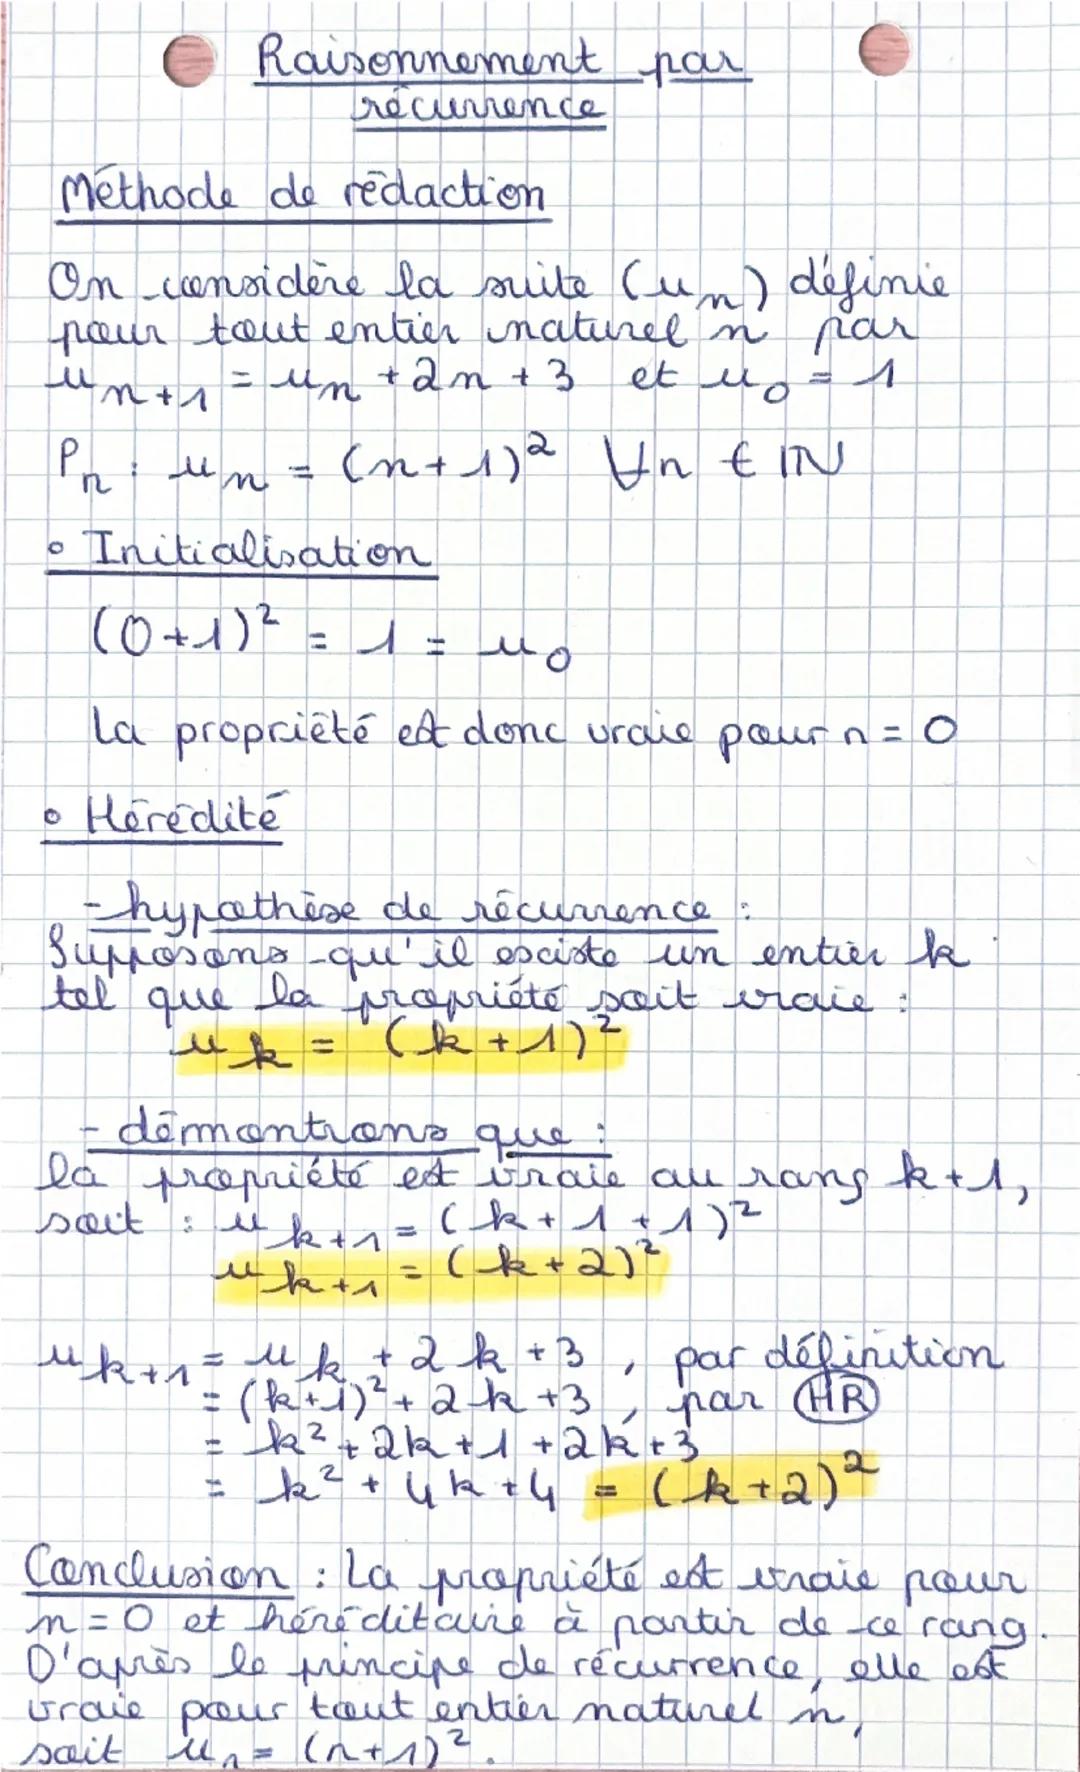 Raisonnement par
récurrence
Méthode de rédaction
On considère la suite (uₙ) définie
pour tout entier naturel n par
uₙ₊₁ = uₙ + 2n + 3 et u₀ = 1
Pₙ : uₙ = (n+1)² ∀n ∈ ℕ
• Initialisation
(0+1)² = 1 = u₀
La propriété est donc vraie pour n = 0
• Hérédité
- hypothèse de récurrence :
Supposons qu'il existe un entier k
tel que la propriété soit vraie :
uₖ = (k+1)²
- démontrons que :
la propriété est vraie au rang k+1,
soit : uₖ₊₁ = (k+1+1)²
uₖ₊₁ = (k+2)²
uₖ₊₁ = uₖ + 2k + 3, par définition
= (k+1)² + 2k + 3, par HR
= k² + 2k + 1 + 2k + 3
= k² + 4k + 4 = (k+2)²
Conclusion : La propriété est vraie pour
n = 0 et héréditaire à partir de ce rang.
D'après le principe de récurrence, elle est
vraie pour tout entier naturel n,
soit uₙ = (n+1)².